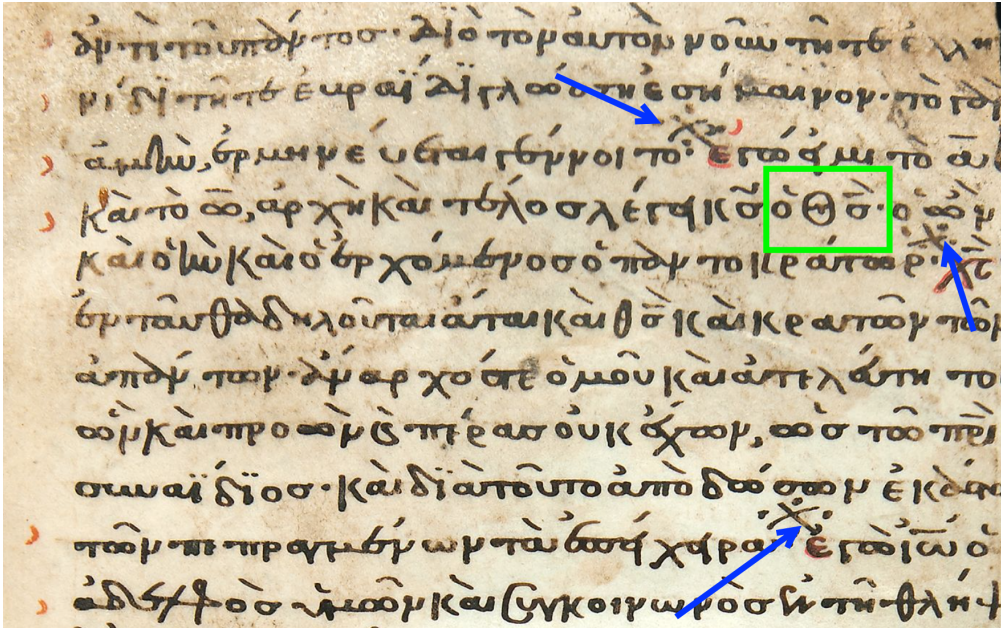 τοῦ παντος· Διὸ τὸν αὐτὸν νοῦν τῆ τε ἑλλη
νίδι τῆ τε ἑβραΐδι γλώσση ἐσήμαινον· τὸ γὰρ
ἀμὴν, ἑρμηνεύεται γένοιτο· Ἐγώ εἰμι τὸ α
καὶ τὸ ω, ἀρχὴ καὶ τέλος λέγει κς ὁ θς· ὁ ὢν
καὶ ὁ ἦν καὶ ὁ ἐρχόμενος ὁ παντοκράτωρ·
ἐνταῦθα δηλοῦται καὶ θς καὶ κρατῶν τῶν
ἁπάντων· ἀνάρχως τε ὁμοῦ καὶ ἀτελεύτητο
ὢν καὶ προὼν καὶ πέρας οὐκ ἔχων, ὡς τῶ πρι
συναΐδιος· καὶ διὰ τοῦτο ἀποδώσων ἑκάστω
τῶν πεπραγμένων τὰ ἐπίχειρα Ἐγὼ ἰω ὁ
ἀδελφὸς ὑμῶν καὶ συγκοινωνὸς ἐν τῆ θλίψ